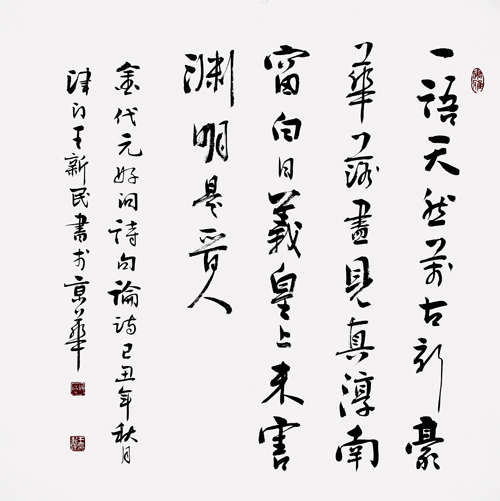 一語天然萬古新豪
華落盡見真淳南
窗白日羲皇上未害
淵明是晉人
金代元好問詩句論詩己丑年秋月
津門王新民書於京華